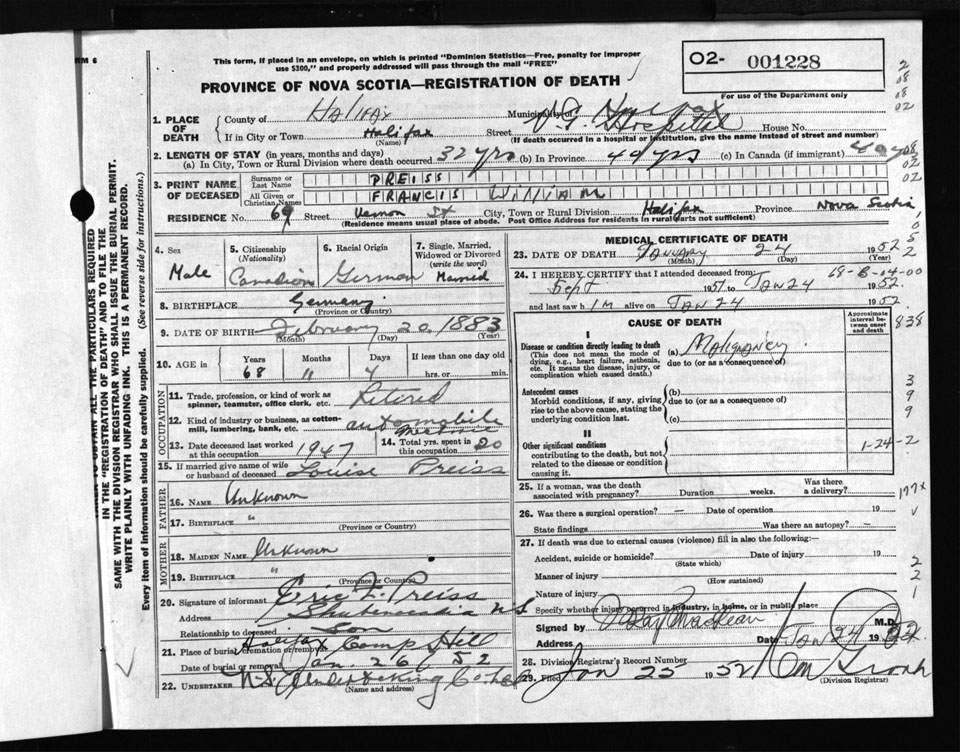 RM 6
This form, if placed in an envelope, on which is printed "Dominion Statistics—Free, penalty for improper
use $300," and properly addressed will pass through the mail "FREE"
PROVINCE OF NOVA SCOTIA—REGISTRATION OF DEATH
O2- 001228
For use of the Department only
1. PLACE OF DEATH
County of Halifax Municipality of Halifax
If in City or Town Halifax Street V.G. Hospital House No.
(Name) (If death occurred in a hospital or institution, give the name instead of street and number)
2. LENGTH OF STAY (in years, months and days)
(a) In City, Town or Rural Division where death occurred 32 yrs (b) In Province 49 yrs (c) In Canada (if immigrant) 49 yrs
3. PRINT NAME OF DECEASED
Surname or Last Name PREISS
All Given or Christian Names FRANCIS William
RESIDENCE No. 69 Street Vernon St City, Town or Rural Division Halifax Province Nova Scotia
(Residence means usual place of abode. Post Office Address for residents in rural parts not sufficient)
4. Sex
Male
5. Citizenship
(Nationality)
Canadian
6. Racial Origin
German
7. Single, Married,
Widowed or Divorced
(write the word)
Married
8. BIRTHPLACE Germany
(Province or Country)
9. DATE OF BIRTH February 20, 1883
(Month) (Day) (Year)
10. AGE in Years Months Days If less than one day old
68 11 4 hrs. or min.
OCCUPATION
11. Trade, profession, or kind of work as
spinner, teamster, office clerk, etc. Retired
12. Kind of industry or business, as cotton-
mill, lumbering, bank, etc. automobile
13. Date deceased last worked
at this occupation 1947
14. Total yrs. spent in
this occupation 20
15. If married give name of wife
or husband of deceased Louise Preiss
FATHER
16. NAME Unknown
17. BIRTHPLACE "
(Province or Country)
MOTHER
18. MAIDEN NAME Unknown
19. BIRTHPLACE "
(Province or Country)
20. Signature of informant Eric F. Preiss
Address Shubenacadia N.S.
Relationship to deceased Son
21. Place of burial, cremation or removal Halifax Camp Hill
Date of burial or removal Jan. 26 52
22. UNDERTAKER N.S. Undertaking Co. Ltd
(Name and address)
MEDICAL CERTIFICATE OF DEATH
23. DATE OF DEATH January 24 1952
(Month) (Day)
24. I HEREBY CERTIFY that I attended deceased from:
Sept 1951 to Jan 24 1952
and last saw him alive on Jan 24 1952
CAUSE OF DEATH
Approximate interval between onset and death
I
Disease or condition directly leading to death
(This does not mean the mode of
dying, e.g., heart failure, asthenia,
etc. It means the disease, injury, or
complication which caused death.)
(a) Malignancy
due to (or as a consequence of)
Antecedent causes
Morbid conditions, if any, giving
rise to the above cause, stating the
underlying condition last.
(b)
due to (or as a consequence of)
(c)
II
Other significant conditions
contributing to the death, but not
related to the disease or condition
causing it.
1-24-2
25. If a woman, was the death
associated with pregnancy? Duration weeks. Was there
a delivery?
26. Was there a surgical operation? — Date of operation 19
State findings Was there an autopsy? —
27. If death was due to external causes (violence) fill in also the following:—
Accident, suicide or homicide? Date of injury 19
(State which)
Manner of injury
(How sustained)
Nature of injury
Specify whether injury occurred in industry, in home, or in public place
Signed by M.D.
Address Date Jan 24 1952.
28. Division Registrar's Record Number
29. Filed Jan 25 1952
(Division Registrar)
838
399
177x
221
TO OBTAIN ALL THE PARTICULARS REQUIRED
IN THE "REGISTRATION OF DEATH" AND TO FILE THE
SAME WITH THE DIVISION REGISTRAR WHO SHALL ISSUE THE BURIAL PERMIT.
WRITE PLAINLY WITH UNFADING INK. THIS IS A PERMANENT RECORD.
Every item of information should be carefully supplied. (See reverse side for instructions.)